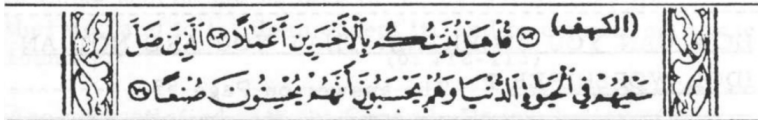 (الكهف) ۝ قُلْ هَلْ نُنَبِّئُكُم بِٱلْأَخْسَرِينَ أَعْمَٰلًا ۝١٠٣ ٱلَّذِينَ ضَلَّ
سَعْيُهُمْ فِي ٱلْحَيَوٰةِ ٱلدُّنْيَا وَهُمْ يَحْسَبُونَ أَنَّهُمْ يُحْسِنُونَ صُنْعًا ۝١٠٤